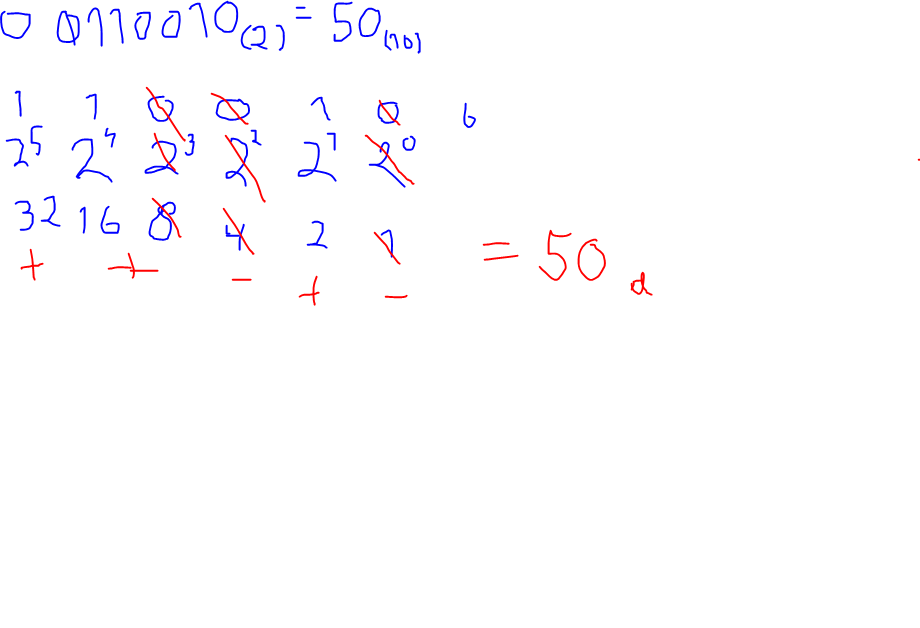 0 0110010(2) = 50(10)
1 1 0 0 1 0 b
2^5 2^4 2^3 2^2 2^1 2^0
32 16 8 4 2 1 = 50 d
+ + - + -